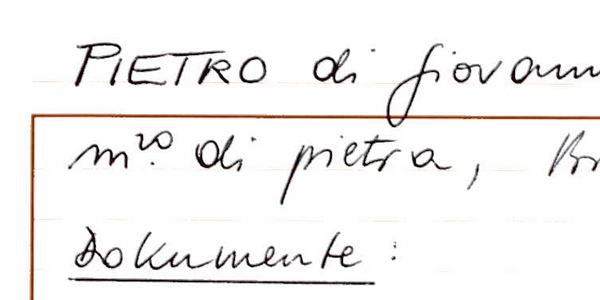 PIETRO di Giovann
m.ro di pietra, Br
Dokumente: